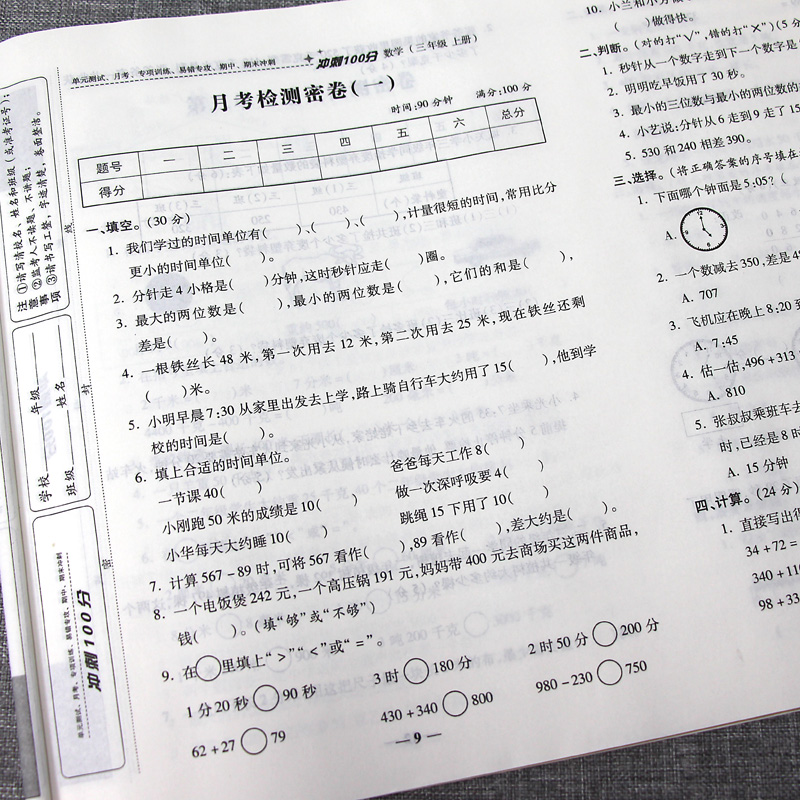 单元测试、月考、专项训练、易错专攻、期中、期末冲刺 冲刺100分 数学(三年级 上册)
月考检测密卷(一)
时间:90分钟 满分:100分
题号 一 二 三 四 五 六 总分
得分
一、填空。(30分)
1. 我们学过的时间单位有( )、( )、( ),计量很短的时间,常用比分
更小的时间单位( )。
2. 分针走4小格是( )分钟,这时秒针应走( )圈。
3. 最大的两位数是( ),最小的两位数是( ),它们的和是( ),
差是( )。
4. 一根铁丝长48米,第一次用去12米,第二次用去25米,现在铁丝还剩
( )米。
5. 小明早晨7:30从家里出发去上学,路上骑自行车大约用了15( ),他到学
校的时间是( )。
6. 填上合适的时间单位。
一节课40( ) 爸爸每天工作8( )
小刚跑50米的成绩是10( ) 做一次深呼吸要4( )
小华每天大约睡10( ) 跳绳15下用了10( )
7. 计算567-89时,可将567看作( ),89看作( ),差大约是( )。
8. 一个电饭煲242元,一个高压锅191元,妈妈带400元去商场买这两件商品,
钱( )。(填“够”或“不够”)
9. 在○里填上“>”“<”或“=”。
1分20秒○90秒 3时○180分 2时50分○200分
62+27○79 430+340○800 980-230○750
— 9 —
10. 小兰和小方
( )做得快。
二、判断。(对的打“√”,错的打“×”)(5分
1. 秒针从一个数字走到下一个数字是
2. 明明吃早饭用了30秒。
3. 最小的三位数与最小的两位数的
4. 小艺说:分针从6走到9走了15
5. 530和240相差390。
三、选择。(将正确答案的序号填在
1. 下面哪个钟面是5:05?(
A.
2. 一个数减去350,差是
A. 707
3. 飞机应在晚上8:20到
A. 7:45
4. 估一估,496+313
A. 810
5. 张叔叔乘班车去
时,已经是8时
A. 15分钟
四、计算。(24分)
1. 直接写出得
34+72=
340+11
98+33
注意事项
①请写清校名、姓名和班级(或准考证号);
②监考人不读题、不讲题;
③请书写工整,字迹清楚,卷面整洁。
学校 年级
班级 姓名
线
封
密
单元测试、月考、专项训练、易错专攻、期中、期末冲刺
冲刺100分